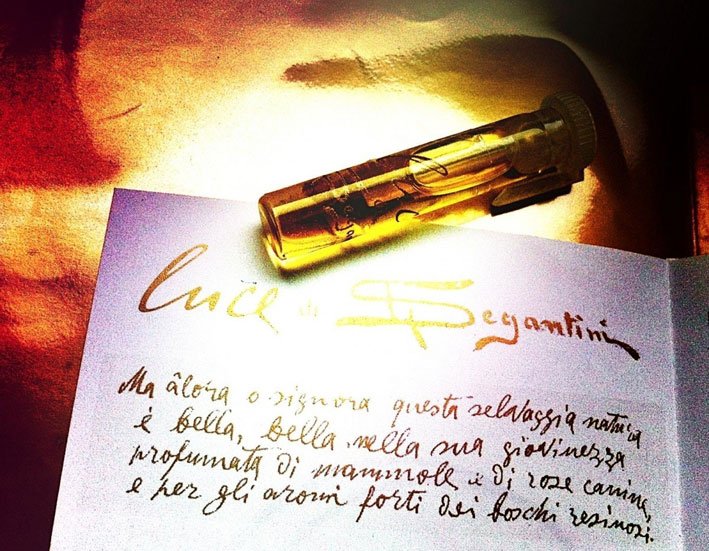 Luce di Segantini
Ma âlora o signora questa selvaggia natura
è bella, bella nella sua giovinezza
profumata di mammole e di rose canine,
e per gli aromi forti dei boschi resinosi.